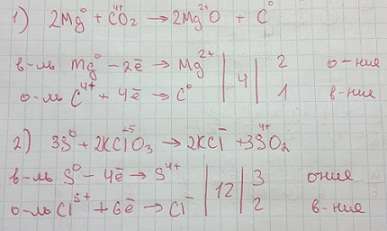 1) 2Mg⁰ + C⁴⁺O₂ → 2Mg²⁺O + C⁰
в-ль Mg⁰ - 2ē → Mg²⁺ | 4 | 2 о-ние
о-ль C⁴⁺ + 4ē → C⁰ | | 1 в-ние
2) 3S⁰ + 2KCl⁺⁵O₃ → 2KCl⁻ + 3S⁴⁺O₂
в-ль S⁰ - 4ē → S⁴⁺ | 12 | 3 ониe
о-ль Cl⁵⁺ + 6ē → Cl⁻ | | 2 в-ние